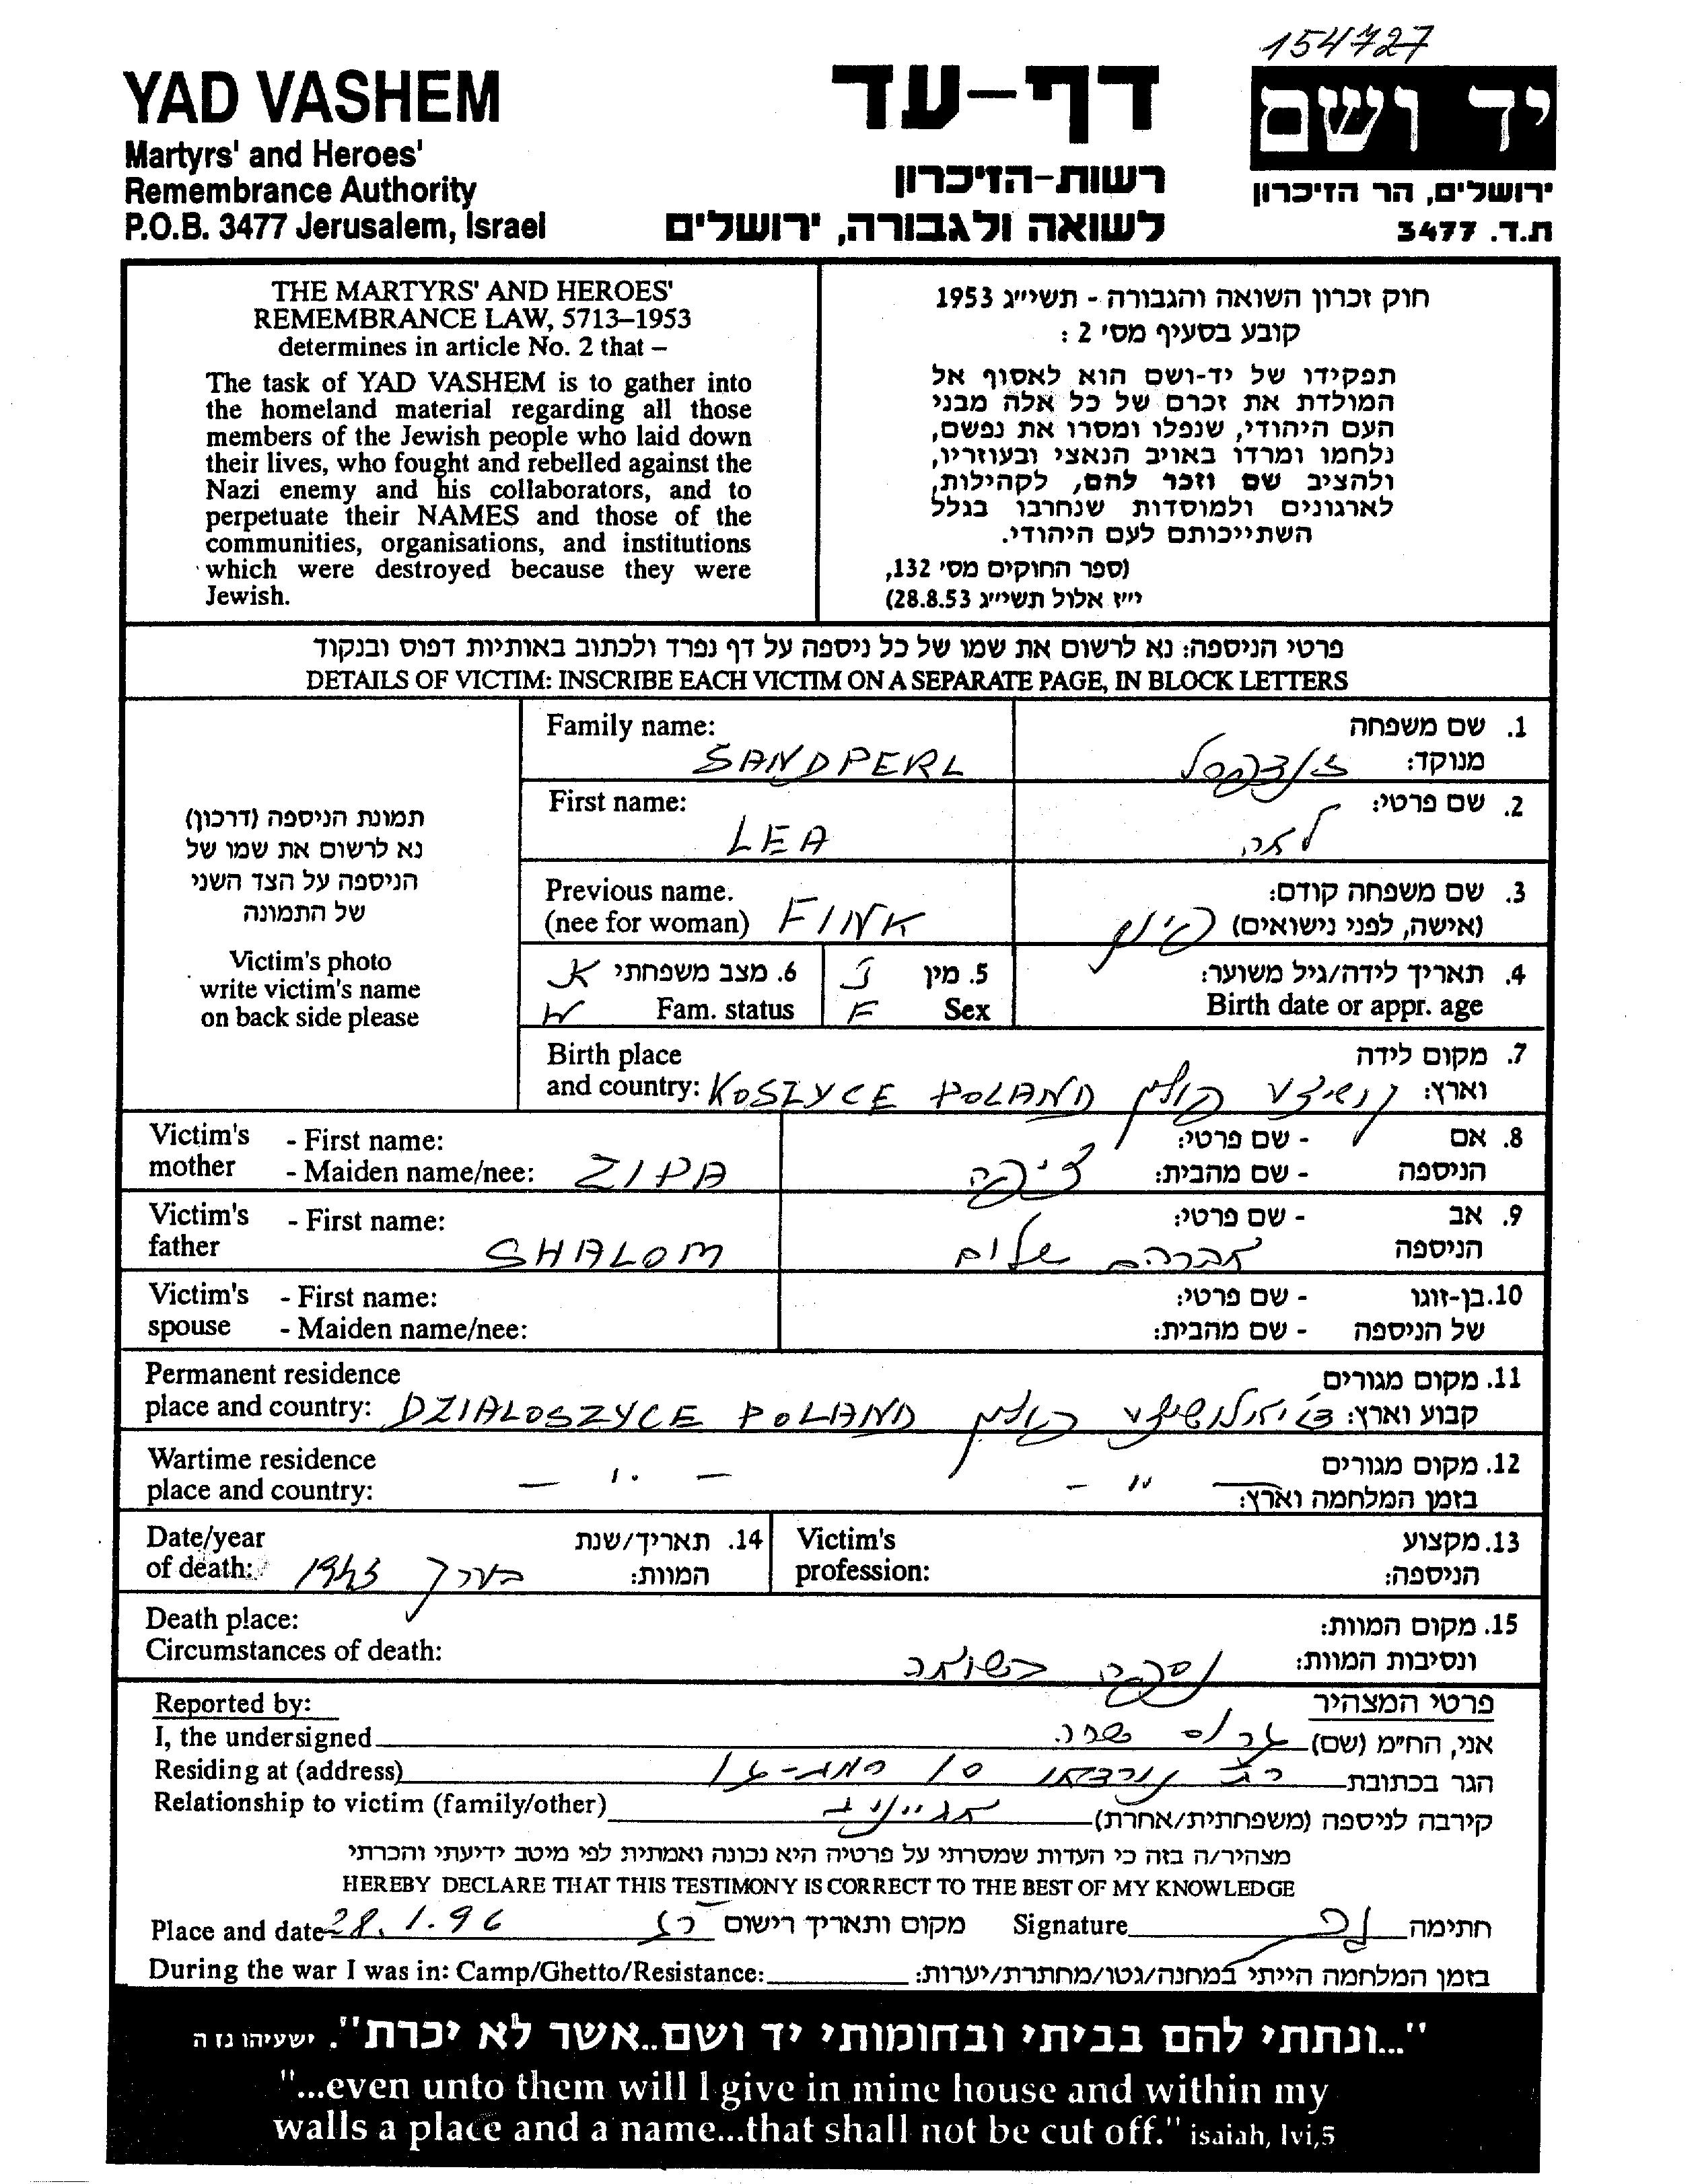 154727
YAD VASHEM
Martyrs' and Heroes'
Remembrance Authority
P.O.B. 3477 Jerusalem, Israel
דף-עד
רשות-הזיכרון
לשואה ולגבורה, ירושלים
יד ושם
ירושלים, הר הזיכרון
ת.ד. 3477
THE MARTYRS' AND HEROES'
REMEMBRANCE LAW, 5713–1953
determines in article No. 2 that –
The task of YAD VASHEM is to gather into
the homeland material regarding all those
members of the Jewish people who laid down
their lives, who fought and rebelled against the
Nazi enemy and his collaborators, and to
perpetuate their NAMES and those of the
communities, organisations, and institutions
which were destroyed because they were
Jewish.
חוק זכרון השואה והגבורה - תשי״ג 1953
קובע בסעיף מס׳ 2 :
תפקידו של יד-ושם הוא לאסוף אל
המולדת את זכרם של כל אלה מבני
העם היהודי, שנפלו ומסרו את נפשם,
נלחמו ומרדו באויב הנאצי ובעוזריו,
ולהציב שם וזכר להם, לקהילות,
לארגונים ולמוסדות שנחרבו בגלל
השתייכותם לעם היהודי.
(ספר החוקים מס׳ 132,
י״ז אלול תשי״ג 28.8.53)
פרטי הניספה: נא לרשום את שמו של כל ניספה על דף נפרד ולכתוב באותיות דפוס ובנקוד
DETAILS OF VICTIM: INSCRIBE EACH VICTIM ON A SEPARATE PAGE, IN BLOCK LETTERS
תמונת הניספה (דרכון)
נא לרשום את שמו של
הניספה על הצד השני
של התמונה
Victim's photo
write victim's name
on back side please
Family name: SANDPERL
1. שם משפחה
מנוקד: זנדפרל
First name: LEA
2. שם פרטי: לאה
Previous name.
(nee for woman) FINK
3. שם משפחה קודם:
(אישה, לפני נישואים) פינק
6. מצב משפחתי א
Fam. status W
5. מין נ
Sex F
4. תאריך לידה/גיל משוער:
Birth date or appr. age
Birth place
and country: KOSZYCE POLAND
7. מקום לידה
וארץ: קושיצע פולין
Victim's mother - First name:
- Maiden name/nee: ZIPA
8. אם הניספה - שם פרטי:
- שם מהבית: ציפה
Victim's father - First name: SHALOM
9. אב הניספה - שם פרטי: אברהם שלום
Victim's spouse - First name:
- Maiden name/nee:
10. בן-זוגו של הניספה - שם פרטי:
- שם מהבית:
Permanent residence
place and country: DZIALOSZYCE POLAND
11. מקום מגורים
קבוע וארץ: דזיאלושיצע פולין
Wartime residence
place and country: — " —
12. מקום מגורים
בזמן המלחמה וארץ: — " —
Date/year
of death:
14. תאריך/שנת
המוות: בערך 1943
Victim's
profession:
13. מקצוע
הניספה:
Death place:
Circumstances of death:
15. מקום המוות:
ונסיבות המוות: נספה בשואה
Reported by:
פרטי המצהיר
I, the undersigned
אני, הח״מ (שם) שרה
Residing at (address)
הגר בכתובת 10
Relationship to victim (family/other)
קירבה לניספה (משפחתית/אחרת) אחיינית
מצהיר/ה בזה כי העדות שמסרתי על פרטיה היא נכונה ואמתית לפי מיטב ידיעתי והכרתי
HEREBY DECLARE THAT THIS TESTIMONY IS CORRECT TO THE BEST OF MY KNOWLEDGE
Place and date 28.1.96 מקום ותאריך רישום Signature חתימה
During the war I was in: Camp/Ghetto/Resistance: בזמן המלחמה הייתי במחנה/גטו/מחתרת/יערות:
"...ונתתי להם בביתי ובחומותי יד ושם..אשר לא יכרת". ישעיהו נז ה
"...even unto them will I give in mine house and within my
walls a place and a name...that shall not be cut off." isaiah, lvi,5